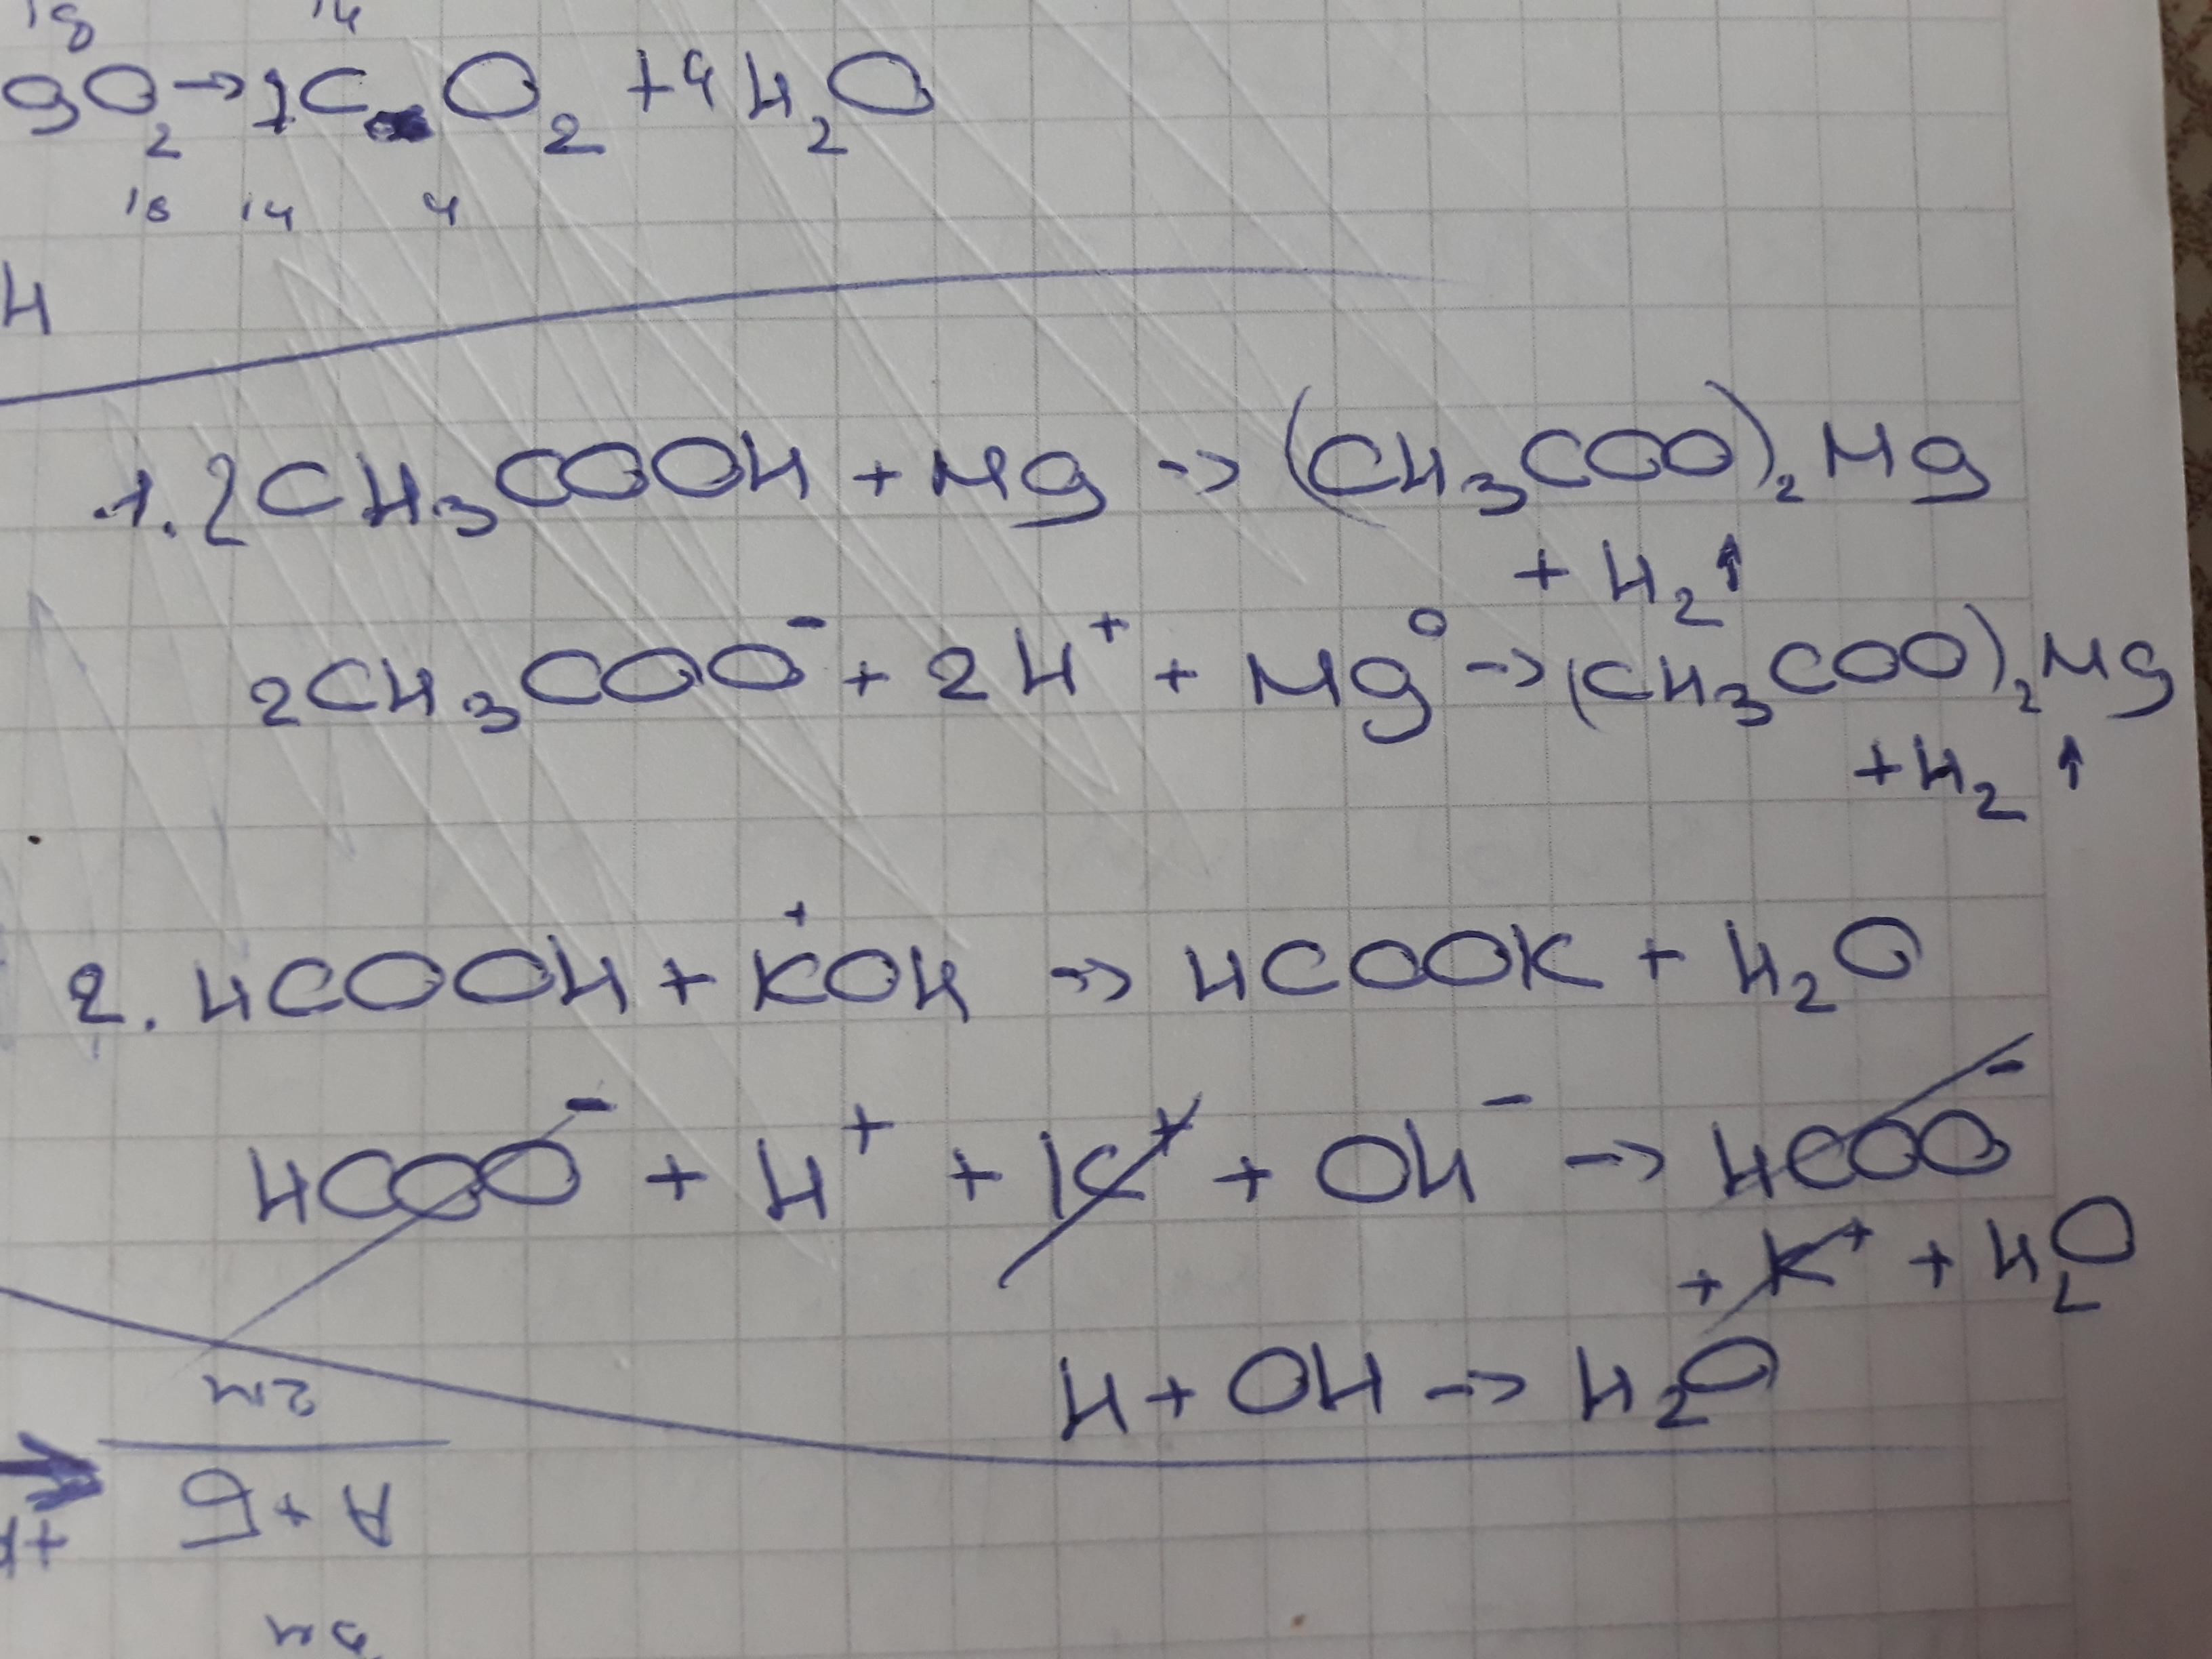 18 14
9O₂ → 7CO₂ + 4H₂O
18 14 4
H
1. 2CH₃COOH + Mg → (CH₃COO)₂Mg
+ H₂↑
2CH₃COO⁻ + 2H⁺ + Mg⁰ → (CH₃COO)₂Mg
+ H₂↑
2. HCOOH + K⁺OH → HCOOK + H₂O
HCOO⁻ + H⁺ + K⁺ + OH⁻ → HCOO⁻
+ K⁺ + H₂O
H + OH → H₂O
А + Б